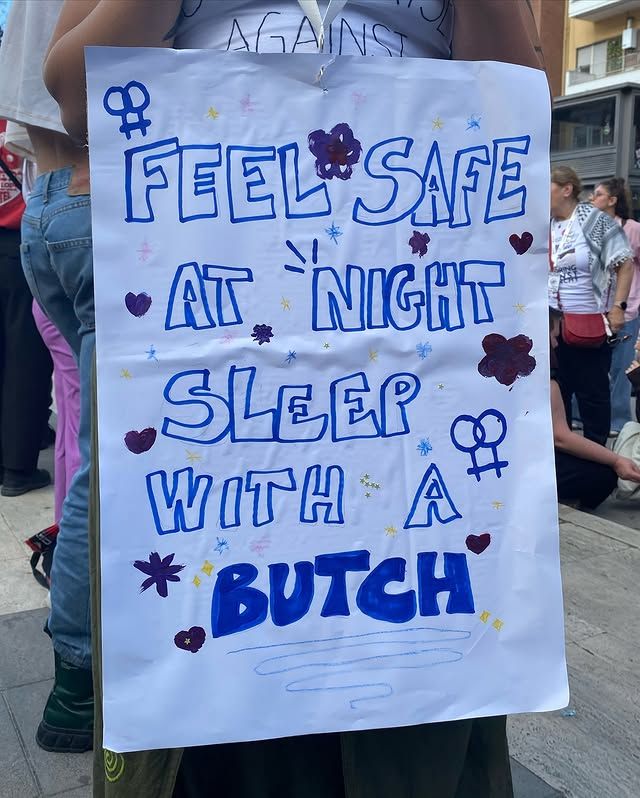 AGAINST
FEEL SAFE
AT NIGHT
SLEEP
WITH A
BUTCH